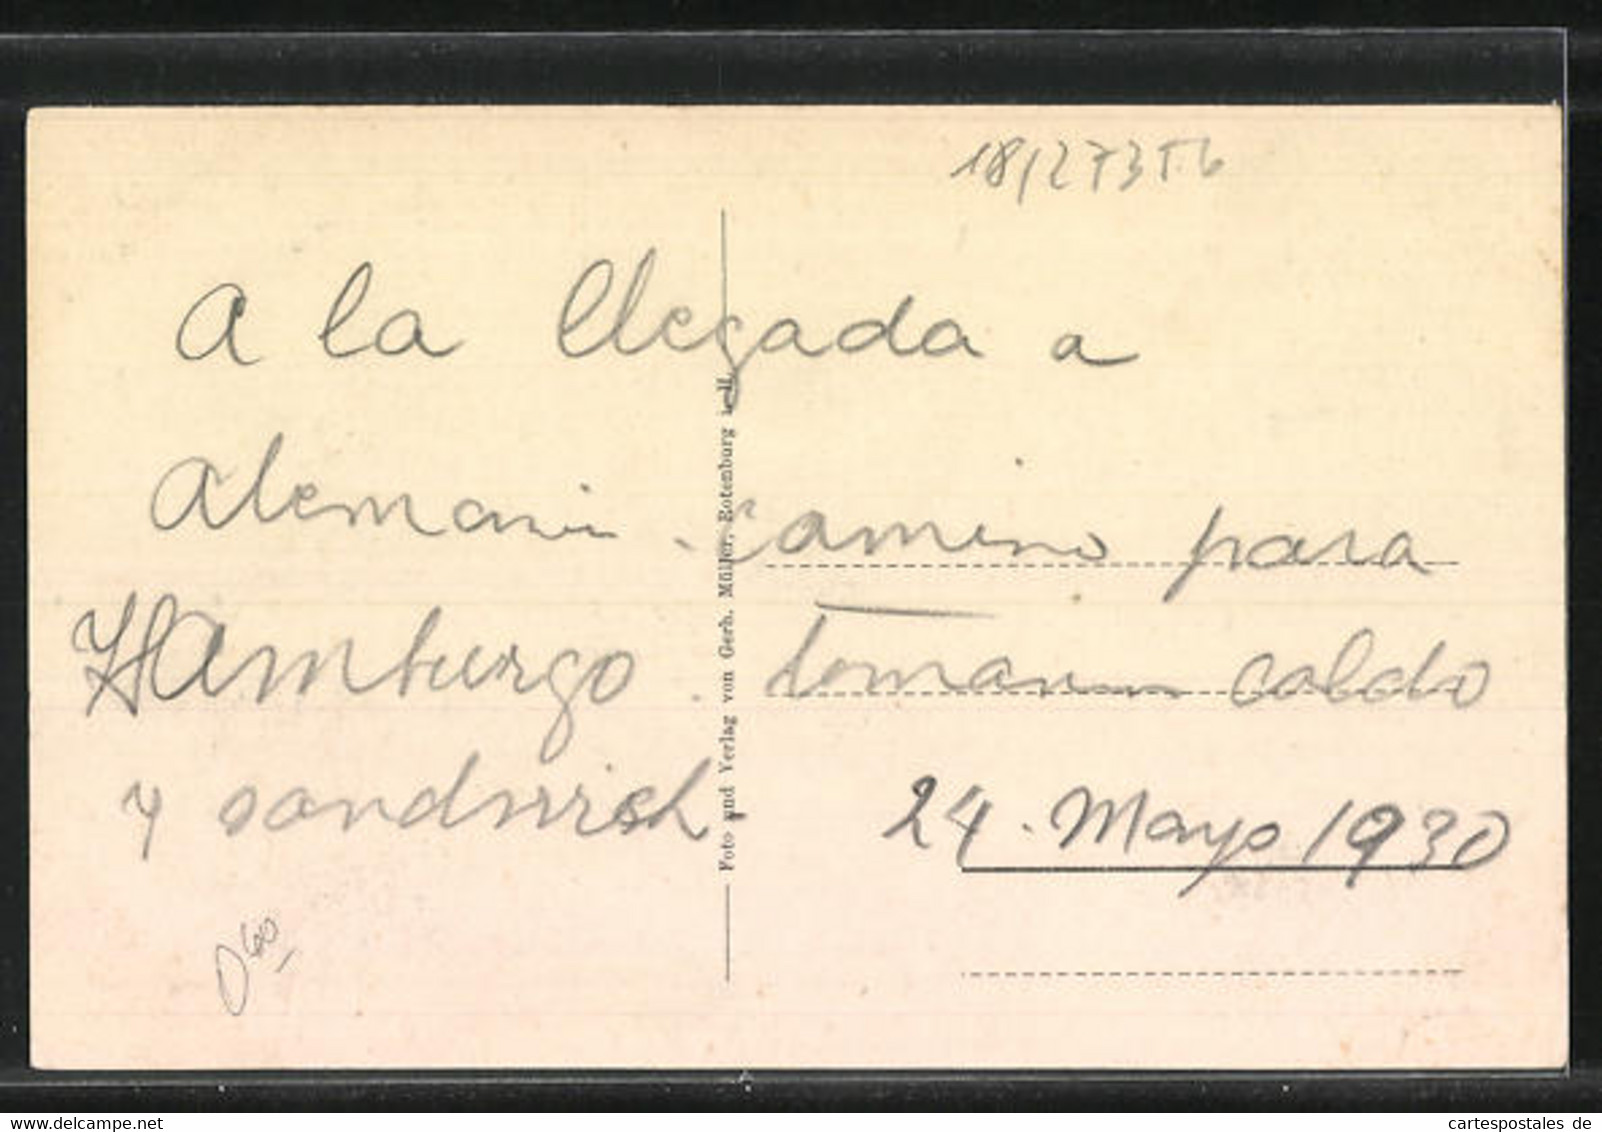 18/273 T.6
A la llegada a
Alemania - camino para
Hamburgo. tomamos caldo
y sandwich.
24. Mayo 1930
Foto und Verlag von Gerh. Müller, Rotenburg i. H.
060
cartespostales de